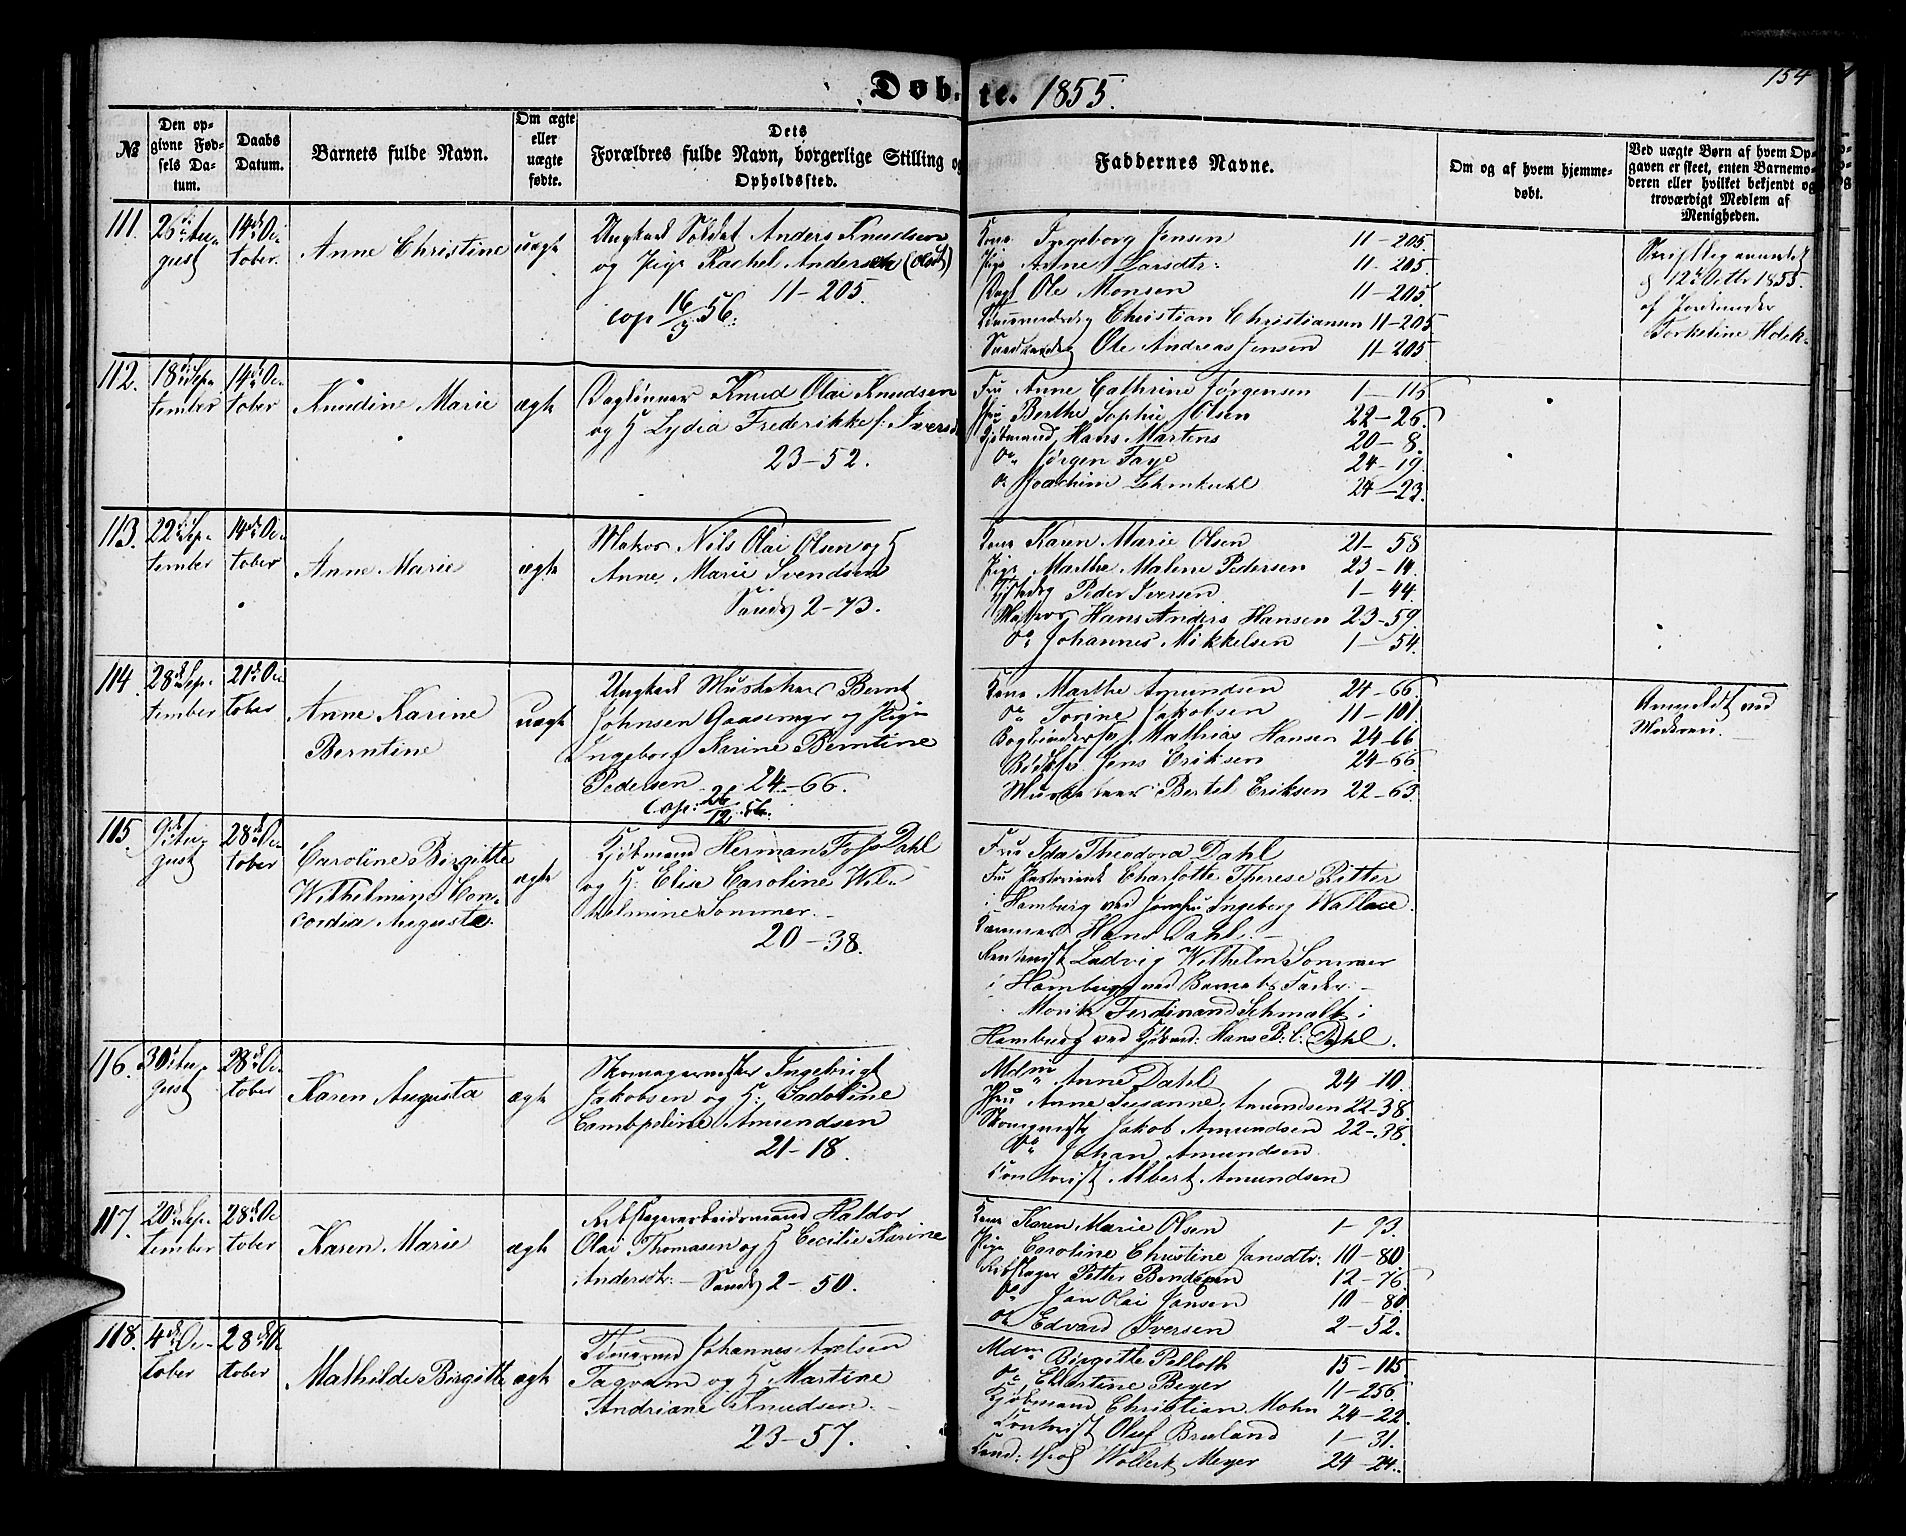 154
Døb- te. 1855.
№
Den op-
givne Fød-
sels Da-
tum.
Daabs
Datum.
Barnets fulde Navn.
Om ægte
eller
uægte
fødte.
Dets
Forældres fulde Navn, borgerlige Stilling og
Opholdssted.
Faddernes Navne.
Om og af hvem hjemme-
døbt.
Ved uægte Børn af hvem Op-
gaven er skeet, enten Barnemo-
deren eller hvilket bekjendt og
troværdigt Medlem af
Menigheden.
111.
26de Au-
gust
14de Oc-
tober.
Anne Christine
uægte
Ungkarl Soldat Anders Knudsen
og Pige Rachel Andersen
11-205.
cop 16/3 56.
Kone Ingeborg Jensen 11-205.
Pige Anne Larsdtr. 11-205.
Ole Monsen 11-205.
Christian Christiansen 11-205
Ole Andreas Jensen 11-205
12te Octbr 1855.
af Jordemoder
112.
18de Sep-
tember
14de Oc-
tober
Knudine Marie
ægte
Dagleønner Knud Olai Knudsen
og H Lydia Frederikke f: Iversd
23-52.
Fru Anne Cathrine Jørgensen 1-115
Fru Berthe Sophie Olsen 22-26.
Kjøbmand Hans Martens 20-8.
Do Jørgen Faye 24-19.
Do Joachim Lehmkuhl 24-23.
113.
22de Sep-
tember
14de Oc-
tober
Anne Marie
ægte
Matros Nils Olai Olsen og H
Anne Marie Svendsen
Sandv 2-73.
Kone Karen Marie Olsen 21-58
Pige Marthe Malene Pedersen 23-14.
Peder Iversen 1-44.
Matros Hans Anders Hansen 23-59.
Do Johannes Mikkelsen 1-54.
114
28de Sep-
tember
21de Oc-
tober
Anne Karine
Berntine
uægte
Ungkarl Musketer Bernt
Johnsen Gaasemyr og Pige
Ingeborg Karine Berntine
Pedersen 24-66.
Cop: 26/12 56.
Kone Marthe Amundsen 24-66.
Do Torine Jakobsen 11-101.
Mathias Hansen 24-66
Jens Eriksen 24-66
Bertel Eriksen 22-63.
Anmeldt ved
Moderen.
115.
9de Au-
gust
28de Oc-
tober
Caroline Birgitte
Wilhelmine Con-
cordia Augusta.
ægte
Kjøbmand Herman Foss Dahl
og H: Elise Caroline Wil-
helmine Sommer.
20-38.
Fru Ida Theodora Dahl
Fru Charlotte Therese Ritter
i Hamburg ved Jomfru Ingeborg Wallace.
Hans Dahl.
Ludvig Wilhelm Sommer
i Hamburg ved Barnets Fader.
Moritz Ferdinand Schmalz i
Hamburg ved Kjøbmd: Hans B: C: Dahl.
116.
30te Au-
gust
28de Oc-
tober
Karen Augusta
ægte
Skomagermester Ingebrigt
Jakobsen og H: Sadoline
Amundsen
21-18.
Mdm Anne Dahl 24-10.
Fru Anne Susanne Amundsen 22-38.
Skomgmstr Jakob Amundsen 22-38.
Do Johan Amundsen
Contorist Albert Amundsen
117.
20de Sep-
tember
28de Oc-
tober
Karen Marie
ægte
Rebslagerarbeidsmand Haldor
Olai Thomasen og H Cecilie Karine
Andersdtr. Sandv 2-50.
Kone Karen Marie Olsen 1-93.
Pige Caroline Christine Jansdtr: 10-80
Rebslager Petter Bendixen 12-76.
Do Jan Olai Jansen 10-80.
Do Edvard Iversen 2-52.
118.
4de Oc-
tober
28de Oc
tober
Mathilde Birgitte
ægte
Tømmermd Johannes Axelsen
Fagvam og H Martine
Andriane Knudsen.
23-57.
Mdm Birgitte Pelloth 15-115
Do Christine Beyer 11-256
Kjøbmand Christian Mohn 24-22.
Contorist Oluf Breland 1-31.
Wollert Meyer 24-24.